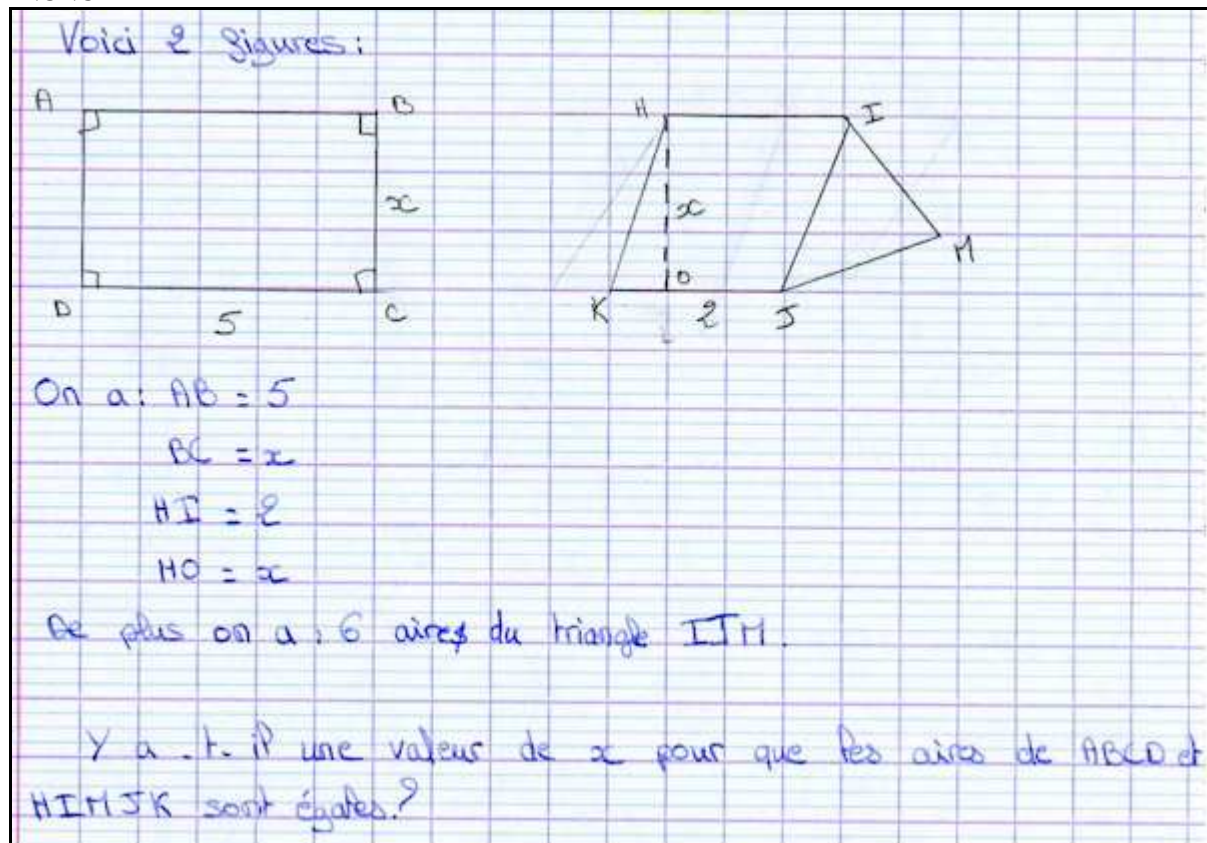 Voici 2 figures :
A B H I
x x
M
D 5 C K O 2 J
On a : AB = 5
BC = x
HI = 2
HO = x
De plus on a : 6 aires du triangle IJM.
Y a . t . il une valeur de x pour que les aires de ABCD et
HIMJK sont égales ?